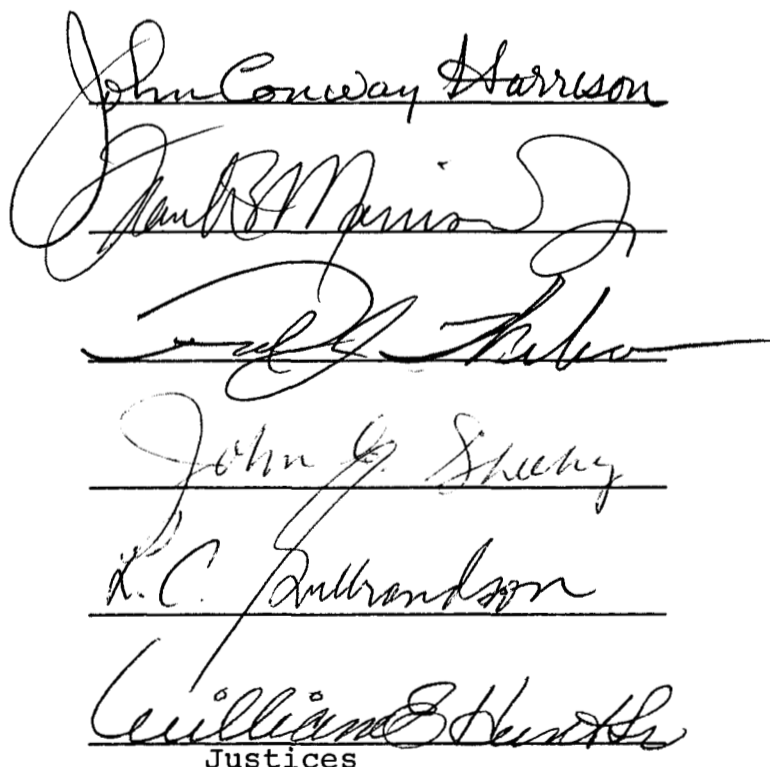 John Conway Harrison
Frank B Morrison Jr
John C. Sheehy
L. C. Gulbrandson
William E Hunt Sr
Justices